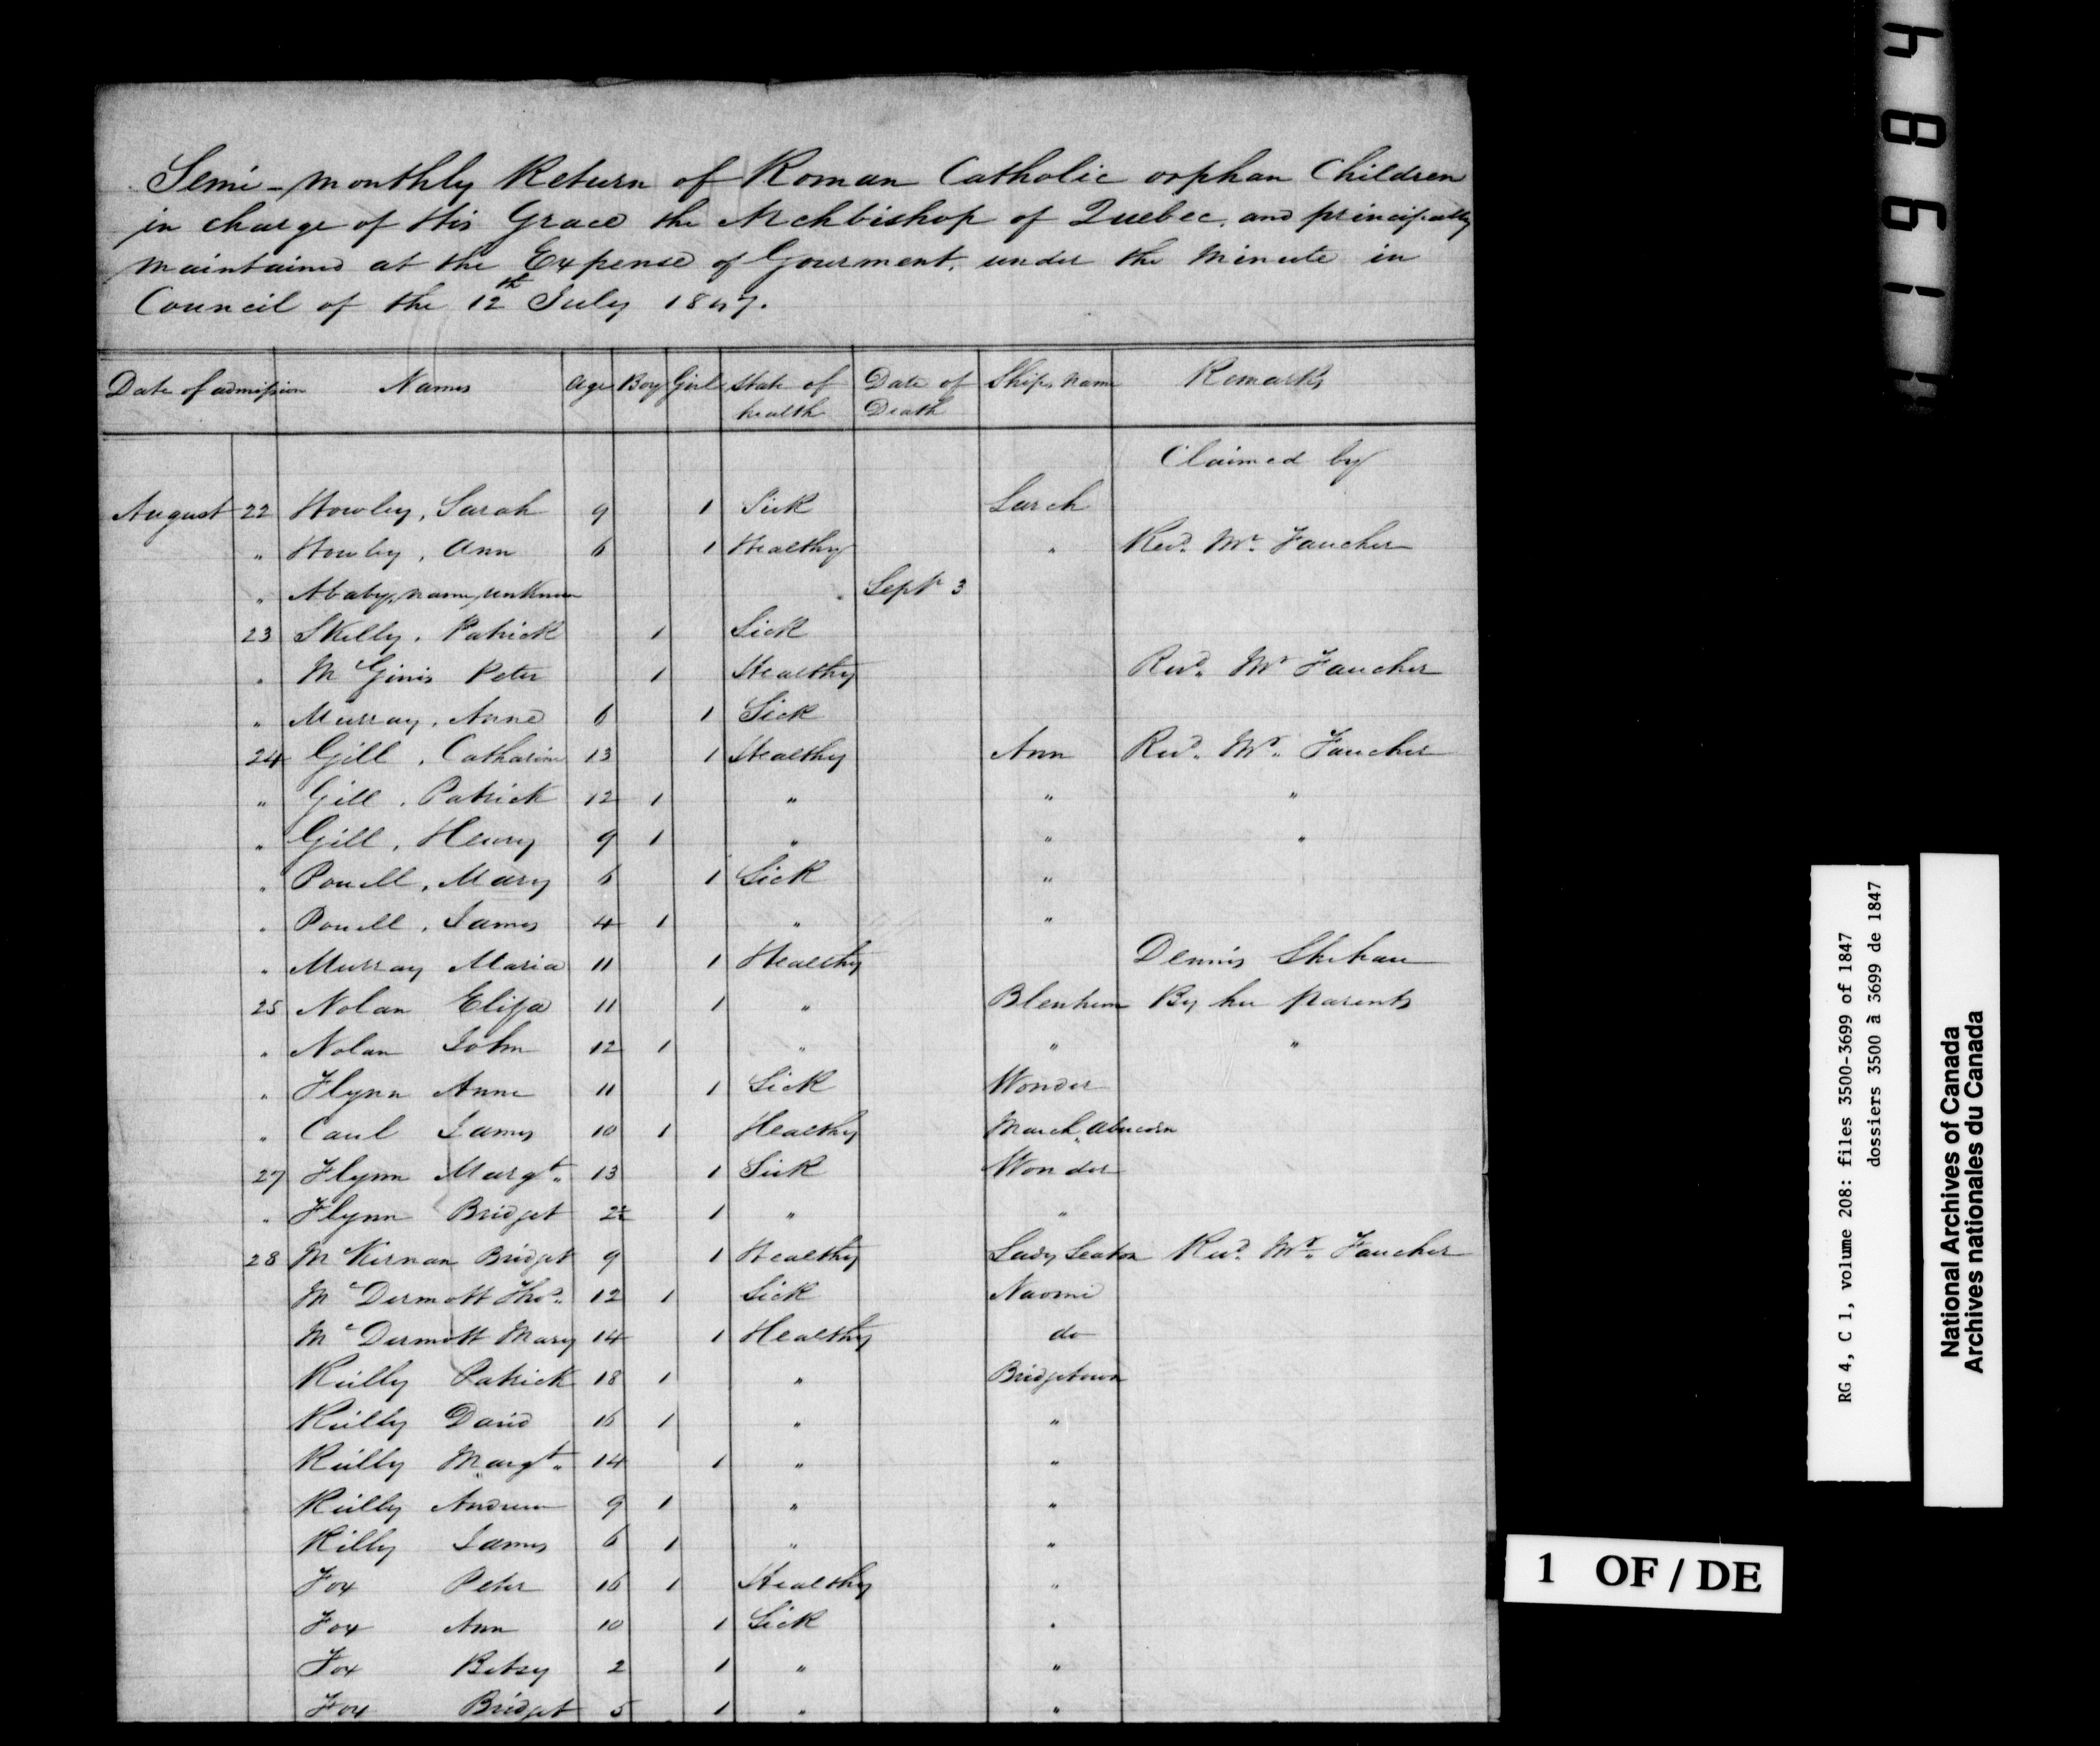 Semi-monthly Return of Roman Catholic orphan Children
in charge of His Grace the Archbishop of Quebec, and principally
maintained at the Expense of Gourment, under the Minute in
Council of the 12th July 1847.
Date of admission Names Age Boy Girl State of health Date of Death Ships name Remarks
Claimed by
August 22 Howley, Sarah 9 1 Sick Larch
" Howley, Ann 6 1 Healthy " Revd. Mr. Faucher
" A baby, name unknown Sept 3
23 Skelly, Patrick 1 Sick
" McGinis Peter 1 Healthy Revd. Mr Faucher
" Murray, Anne 6 1 Sick
24 Gill, Catharine 13 1 Healthy Ann Revd. Mr. Faucher
" Gill, Patrick 12 1 " " "
" Gill, Henry 9 1 " " "
" Powell, Mary 6 1 Sick "
" Powell, James 4 1 " "
" Murray Maria 11 1 Healthy Dennis Shehan
25 Nolan Eliza 11 1 " Blenheim By her parents
" Nolan John 12 1 " " "
" Flynn Anne 11 1 Sick Wonder
" Caul James 10 1 Healthy March. Abucorn
27 Flynn Margt. 13 1 Sick Wonder
" Flynn Bridget 1 " "
28 McKernan Bridget 9 1 Healthy Lady Seaton Revd. Mr. Faucher
McDermott Thos. 12 1 Sick Naomi
McDermott Mary 14 1 Healthy do
Reilly Patrick 18 1 " Bridgetown
Reilly David 16 1 " "
Reilly Margt. 14 1 " "
Reilly Andrew 9 1 " "
Rilly James 6 1 " "
Fox Peter 16 1 Healthy "
Fox Ann 10 1 Sick "
Fox Betsy 2 1 " "
Fox Bridget 5 1 " "
RG 4, C 1, volume 208: files 3500-3699 of 1847
dossiers 3500 à 3699 de 1847
National Archives of Canada
Archives nationales du Canada
1 OF / DE